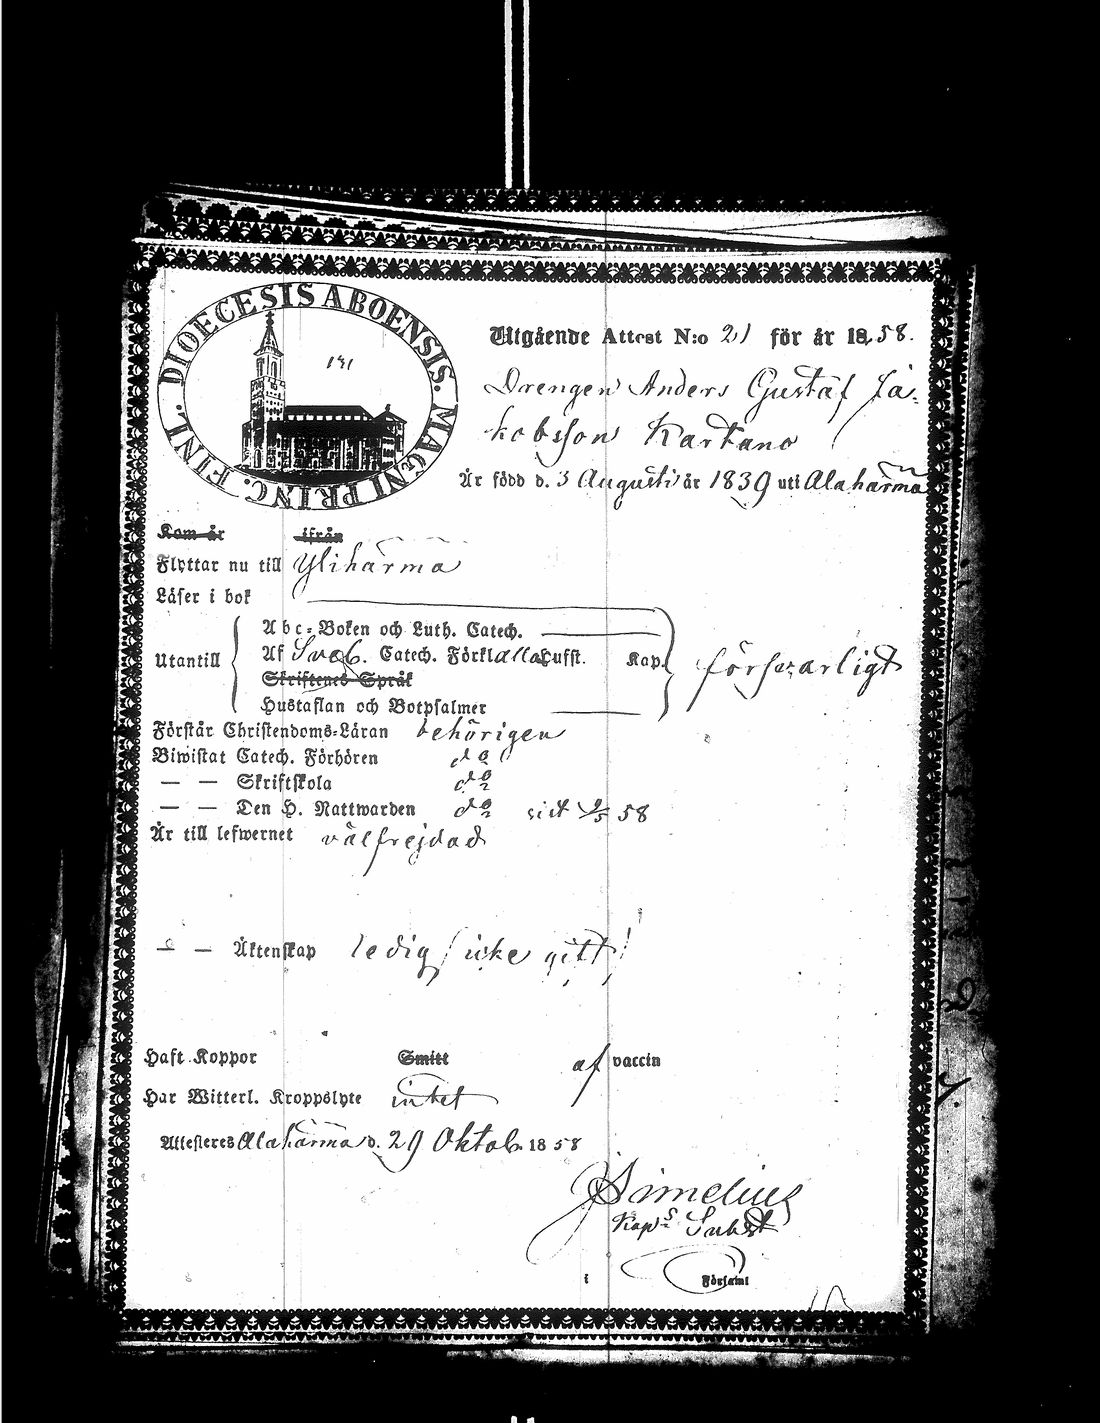 DIOECESIS ABOENSIS. MAGNI PRINC. FINL.
131
Utgående Attest N:o 21 för år 1858.
Drengen Anders Gustaf Ja-
kobsson Kartano
Är född d. 3 Augusti år 1839 uti Alahärmä
Kom år ifrån
Flyttar nu till Ylihärmä
Läser i bok
Abc-Boken och Luth. Catech.
Utantill Af Sveb. Catech. Förkl. alla Lufst. Kap. försvarligt
Skriftenes Språk
Hustaflan och Botpsalmer
Förstår Christendoms-Läran behörigen
Biwistat Catech. Förhören do
— — Skriftskola do
— — Den H. Nattwarden do sist 9/5 58
Är till lefwernet välfrejdad
— — Äktenskap ledig / icke gift /
Haft Koppor Smitt af vaccin
Har Witterl. Kroppslyte intet
Attesteras Alahärmä d. 29 Oktob. 1858
Simelius
Kaps Subst
i Församl